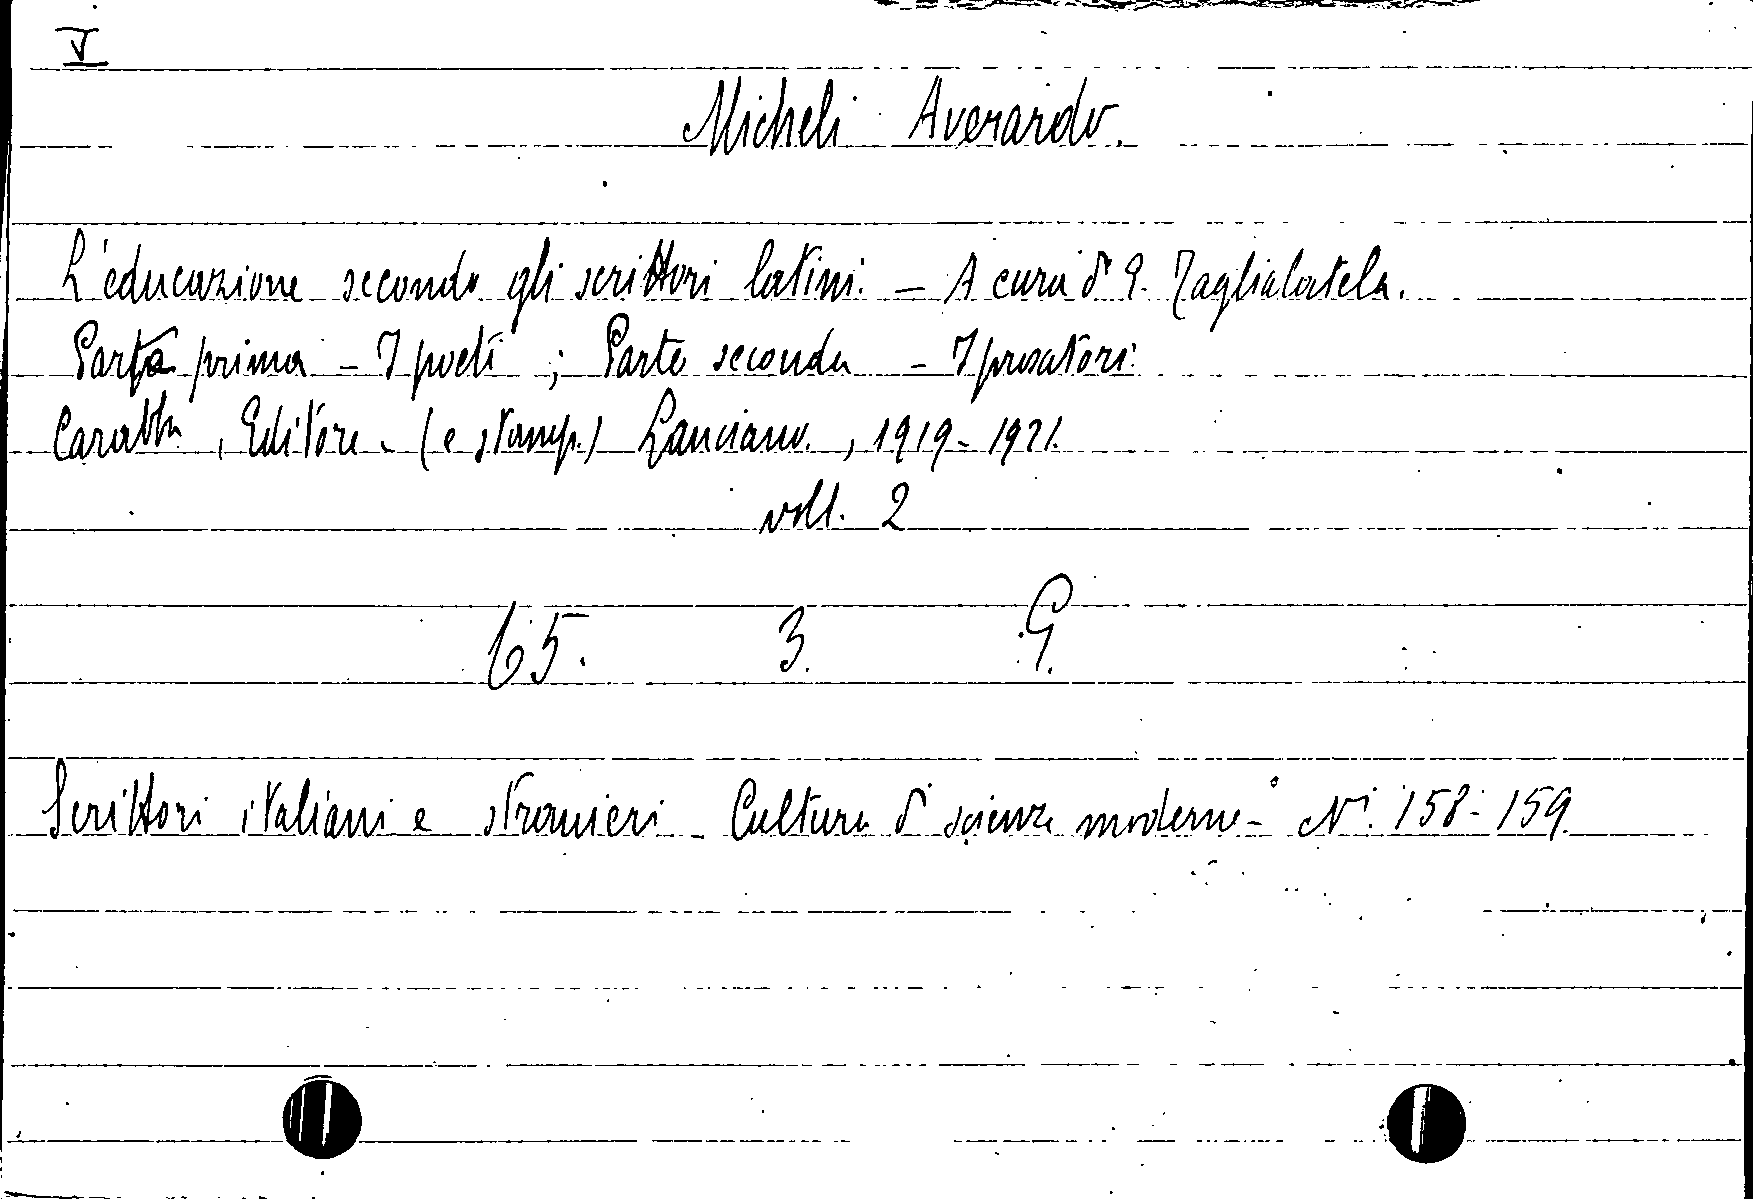 V
Micheli Averardo.
L'educazione secondo gli scrittori latini. - A cura di G. Taglialatela.
Parte prima - I poeti ; Parte seconda - I prosatori.
Carabba, Editore - (e stamp.) Lanciano., 1919-1921.
voll. 2
65. 3. G.
Scrittori italiani e stranieri - Cultura di scienze moderne - Ni. 158-159.